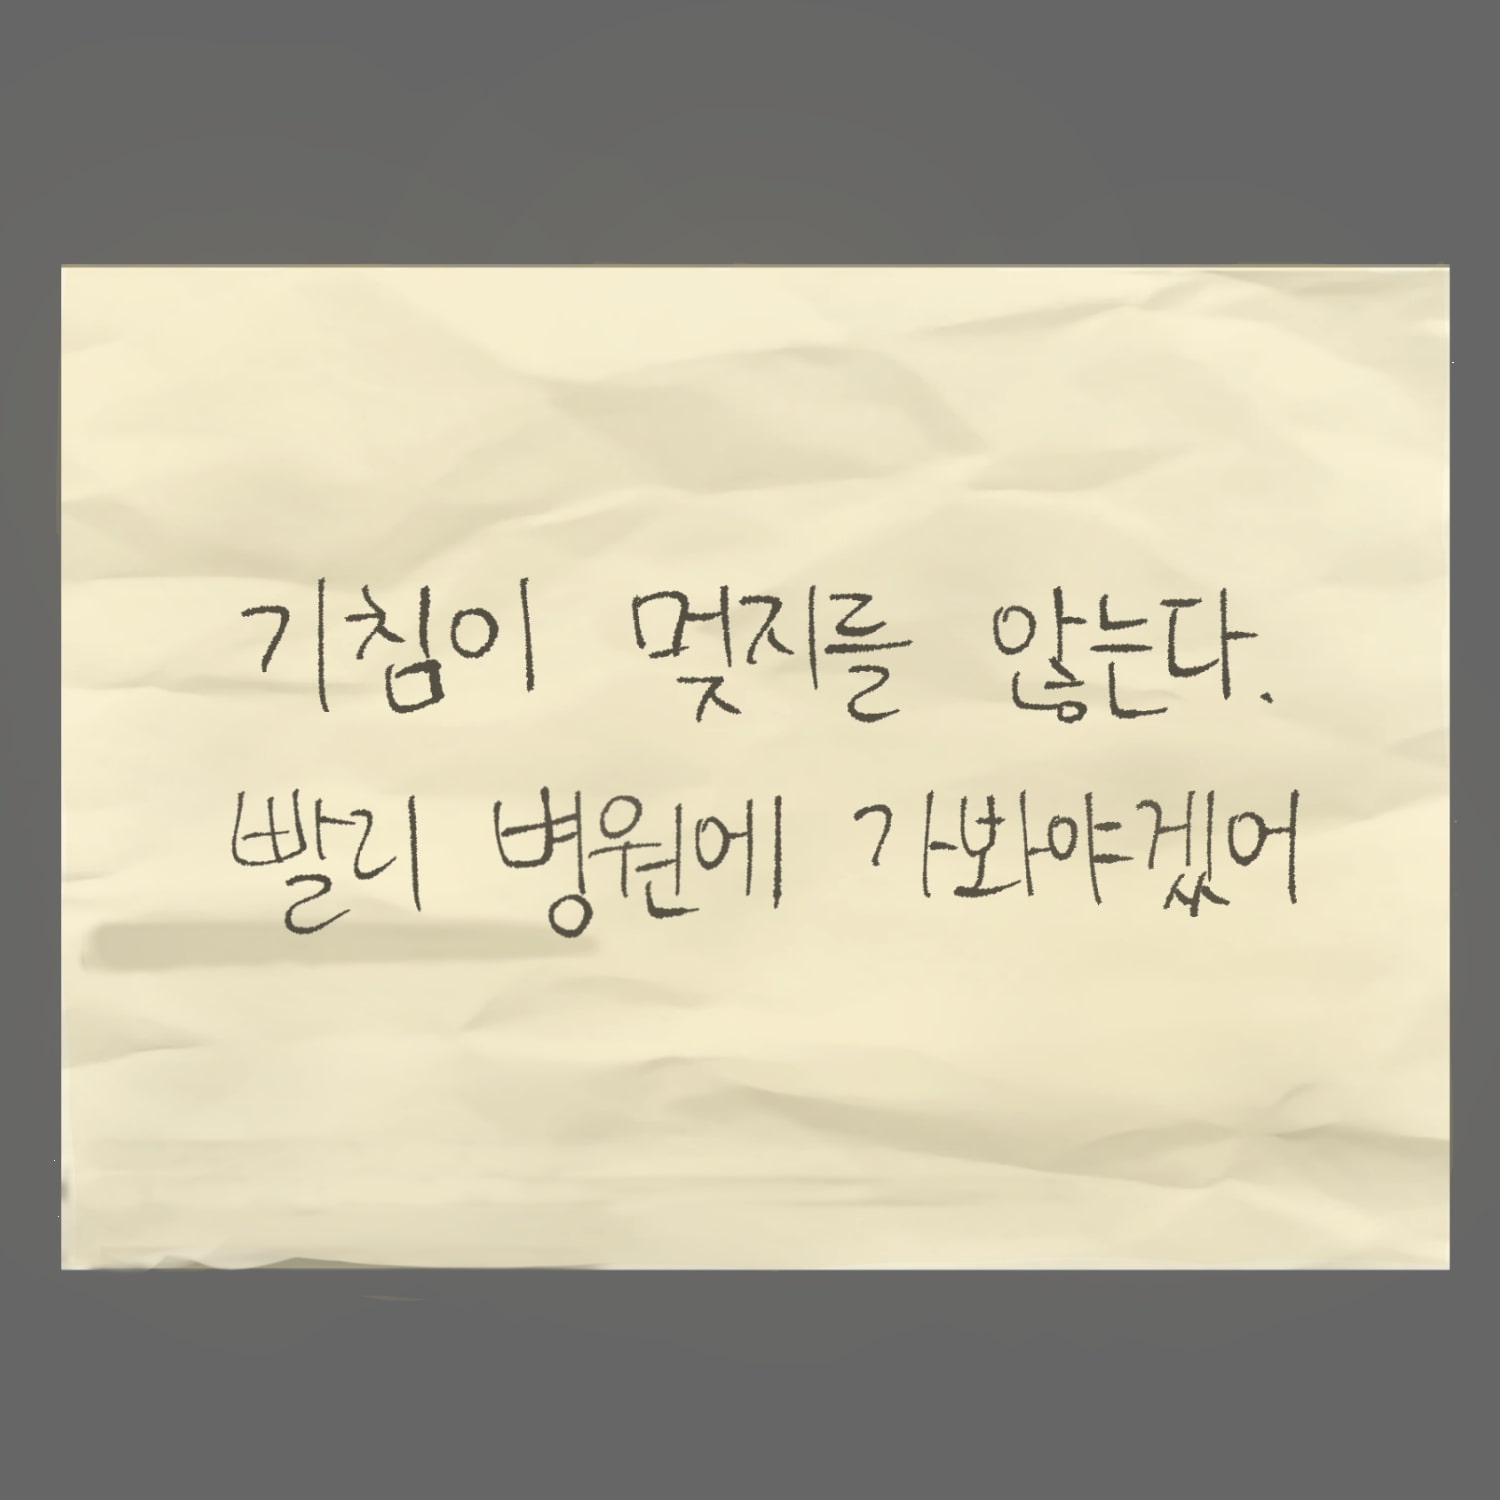 기침이 멎지를 않는다.
빨리 병원에 가봐야겠어